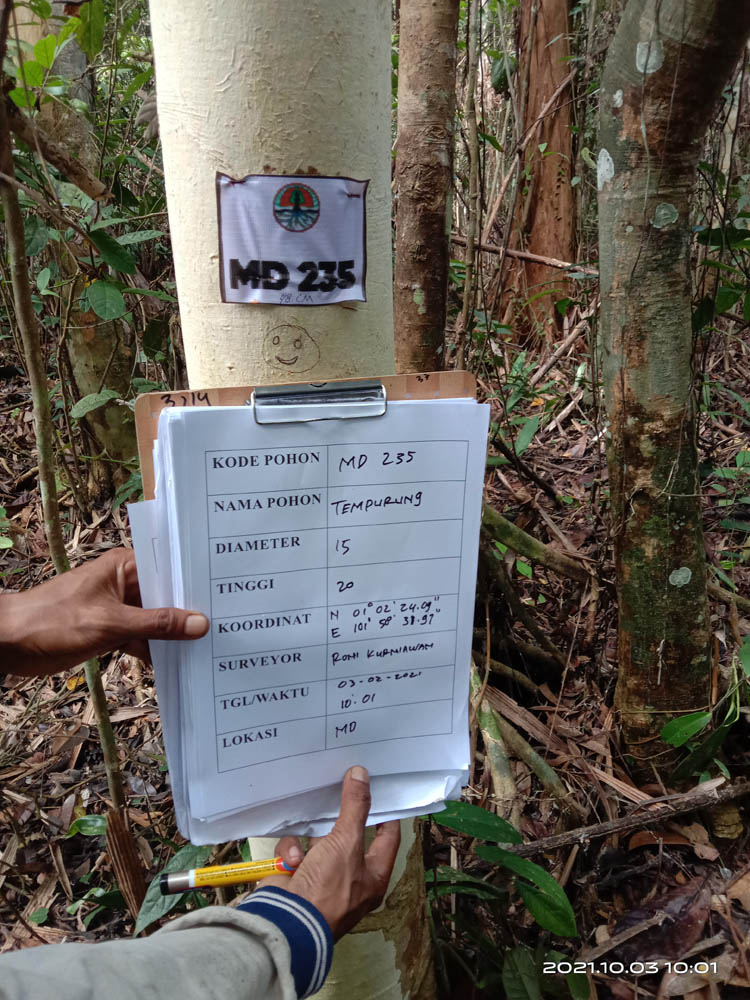 MD 235
48 CM
3/14
KODE POHON MD 235
NAMA POHON TEMPURUNG
DIAMETER 15
TINGGI 20
KOORDINAT N 01° 02' 24.09"
E 101° 58' 38.97"
SURVEYOR RONI KURNIAWAN
TGL/WAKTU 03-02-2021
10:01
LOKASI MD
2021.10.03 10:01